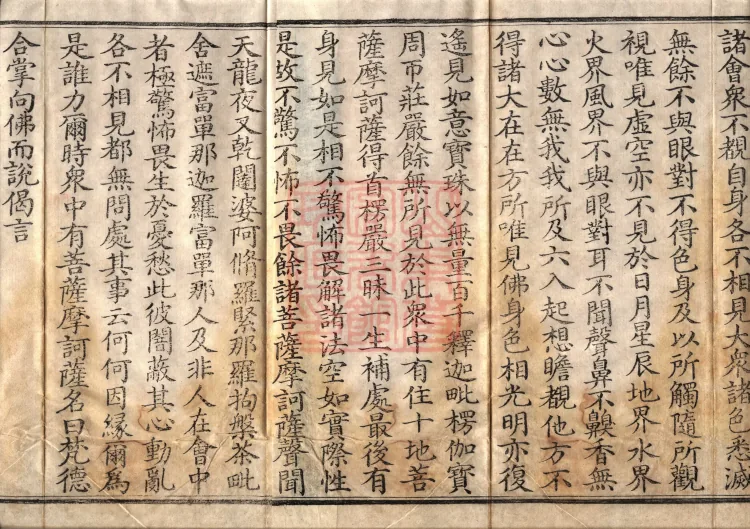 諸會衆不觀自身各不相見大衆諸色悉滅
無餘不與眼對不得色身及以所觸隨所觀
視唯見虛空亦不見於日月星辰地界水界
火界風界不與眼對耳不聞聲鼻不齅香無
心心數無我我所及六入起想瞻覩他方不
得諸大在在方所唯見佛身色相光明亦復
遙見如意寶珠以無量百千釋迦毗楞伽寶
周帀莊嚴餘無所見於此衆中有住十地菩
薩摩訶薩得首楞嚴三昧一生補處最後有
身見如是相不驚怖畏解諸法空如實際性
是故不驚不怖不畏餘諸菩薩摩訶薩聲聞
天龍夜叉乾闥婆阿脩羅緊那羅拘槃茶毗
舍遮富單那迦羅富單那人及非人在會中
者極驚怖畏生於憂愁此彼闇蔽其心動亂
各不相見都無問處其事云何何因緣爾爲
是誰力爾時衆中有菩薩摩訶薩名曰梵德
合掌向佛而說偈言